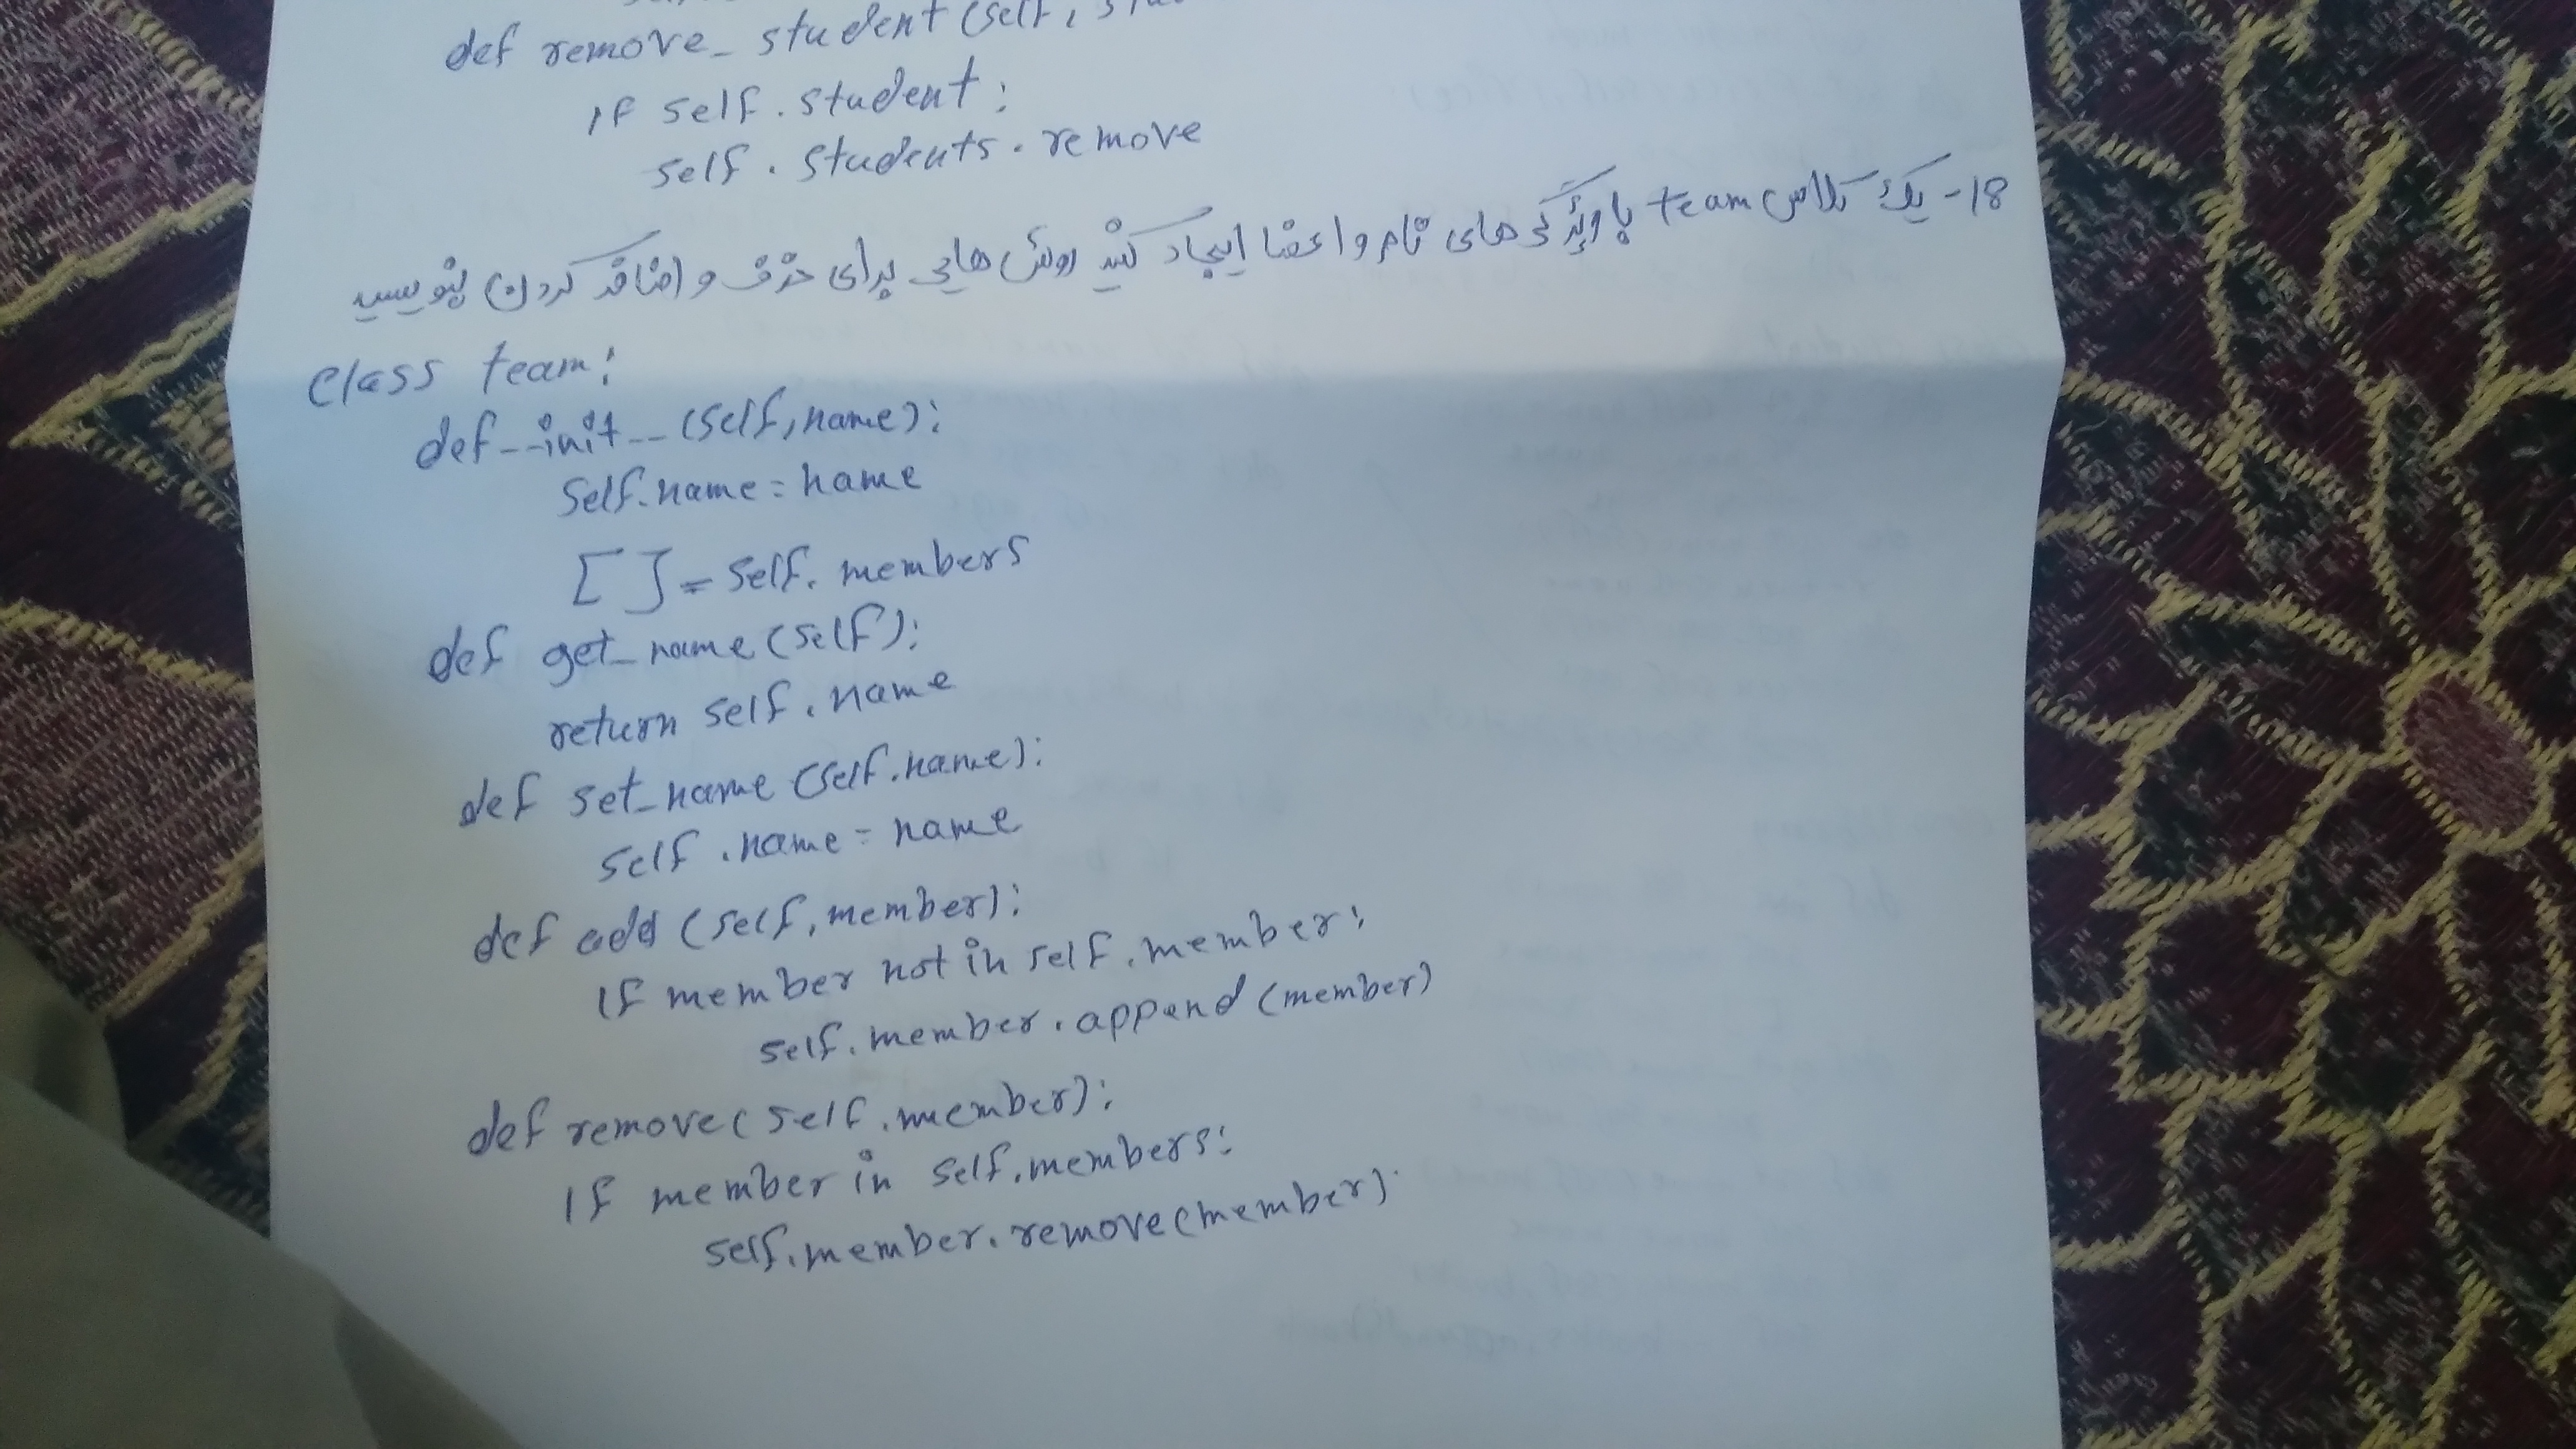 def remove_student(self,
if self.student:
self.students.remove
18- یک کلاس team بنویسید که نام و اعضا را
class team:
def __init__(self,name):
self.name = name
[] = self.members
def get_name(self):
return self.name
def set_name(self.name):
self.name = name
def add(self,member):
if member not in self.member:
self.member.append(member)
def remove(self.member):
if member in self.members:
self.member.remove(member)